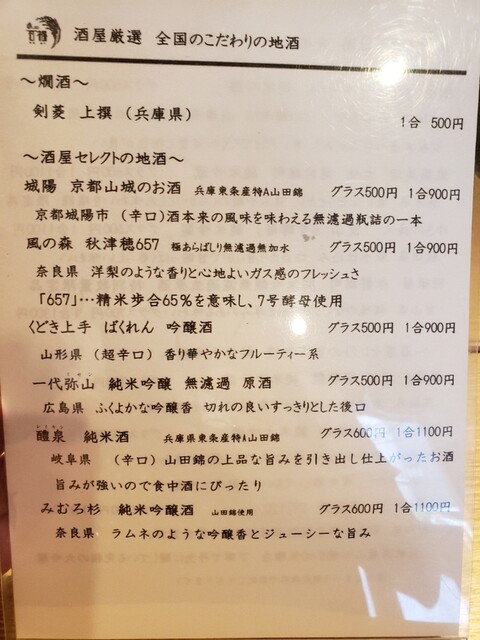 酒屋厳選 全国のこだわりの地酒
～燗酒～
剣菱 上撰 (兵庫県) 1合 500円
～酒屋セレクトの地酒～
城陽 京都山城のお酒 兵庫東条産特A山田錦 グラス500円 1合900円
京都城陽市 (辛口)酒本来の風味を味わえる無濾過瓶詰の一本
風の森 秋津穂657 極あらばしり無濾過無加水 グラス500円 1合900円
奈良県 洋梨のような香りと心地よいガス感のフレッシュさ
「657」…精米歩合65%を意味し、7号酵母使用
くどき上手 ばくれん 吟醸酒 グラス500円 1合900円
山形県 (超辛口) 香り華やかなフルーティー系
一代弥山 純米吟醸 無濾過 原酒 グラス500円 1合900円
広島県 ふくよかな吟醸香 切れの良いすっきりとした後口
醴泉 純米酒 兵庫県東条産特A山田錦 グラス600円 1合1100円
岐阜県 (辛口) 山田錦の上品な旨みを引き出し仕上がったお酒
旨みが強いので食中酒にぴったり
みむろ杉 純米吟醸酒 山田錦使用 グラス600円 1合1100円
奈良県 ラムネのような吟醸香とジューシーな旨み